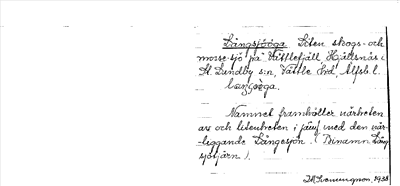 Långsjööga Liten skogs- och
mosse-sjö på Vättlefjäll, Hjällsnäs i
St. Lundby s:n, Vättle hd, Älfsb. l.
Namnet framhåller närheten
av och litenheten i jämf. med den när-
-liggande Långesjön. (Dinamn Lång-
sjötjärn).
1938